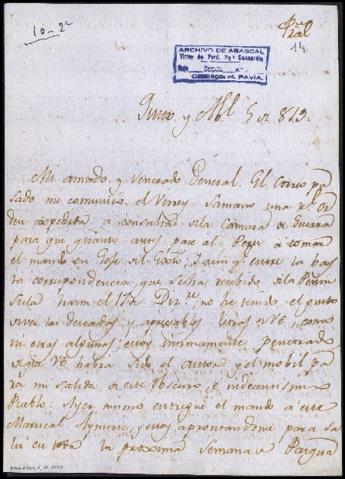 10-2ª
Pral
14
ARCHIVO DE ABASCAL
Virrey de Perú. Mqs Concordia
COLECCIÓN M. PAVIA.
Quito y Abl 5 de 819.
Mi amado y Venerado General. El Correo pa
sado me comunicó el Virrey Samano una Rl Or
den expedida a consulta de la Camara de Guerra
para que quanto antes pase al Perú a tomar
el mando en Gefe del Exto, y aunqe entre la bas
ta correspondencia que se ha recibido de la Penin
sula hasta el 17 de Dizre, no he tenido el gusto
de ver las deseadas y apreciables letras de VE, como
ni otras algunas; estoy intimamente penetrado
de qe VE habra sido el autor y el mobil pa
ra mi salida de este obscuro, e indecentisimo
Pueblo: Ayer mismo entregué el mando a este
Mariscal Aymeric, y estoy aprontandome para sa
lir en toda la proxima Semana de Pasqua